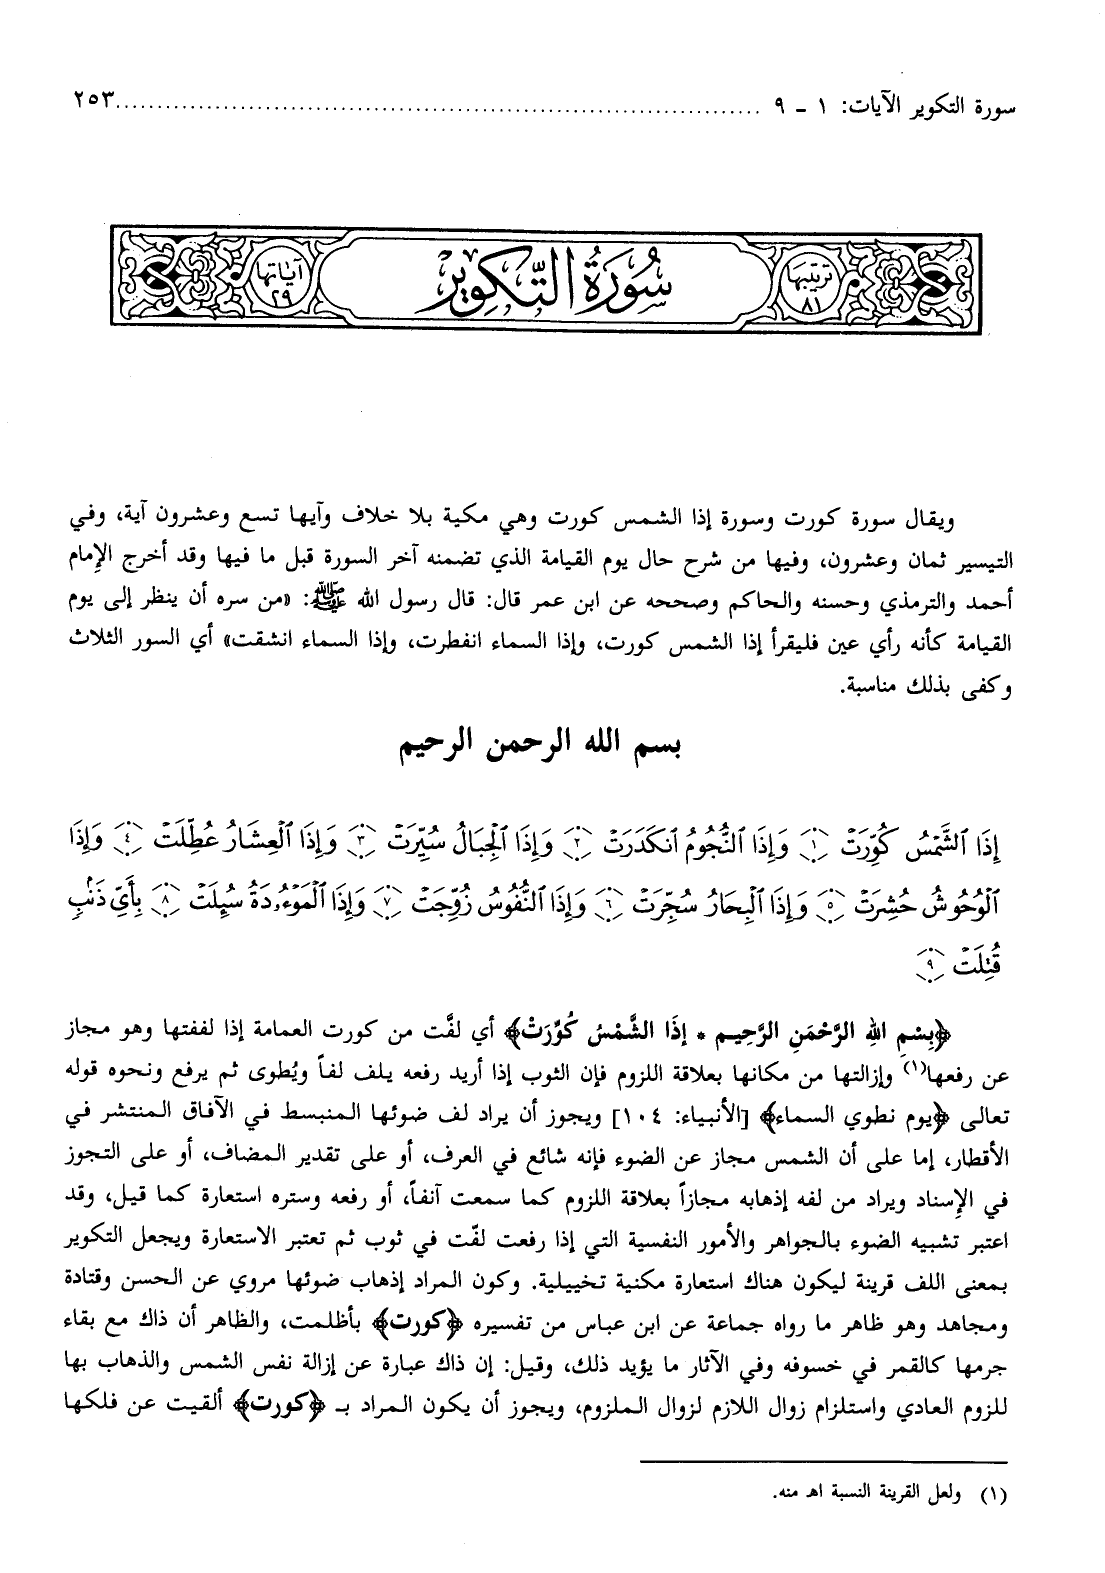 سورة التكوير الآيات: ١ - ٩ ................................................................................ ٢٥٣
ترتيبها ٨١
سُورَةُ التَّكْوِير
آياتها ٢٩
ويقال سورة كورت وسورة إذا الشمس كورت وهي مكية بلا خلاف وآيها تسع وعشرون آية، وفي
التيسير ثمان وعشرون، وفيها من شرح حال يوم القيامة الذي تضمنه آخر السورة قبل ما فيها وقد أخرج الإمام
أحمد والترمذي وحسنه والحاكم وصححه عن ابن عمر قال: قال رسول الله ﷺ: «من سره أن ينظر إلى يوم
القيامة كأنه رأي عين فليقرأ إذا الشمس كورت، وإذا السماء انفطرت، وإذا السماء انشقت» أي السور الثلاث
وكفى بذلك مناسبة.
بسم الله الرحمن الرحيم
إِذَا ٱلشَّمْسُ كُوِّرَتْ ١ وَإِذَا ٱلنُّجُومُ ٱنكَدَرَتْ ٢ وَإِذَا ٱلْجِبَالُ سُيِّرَتْ ٣ وَإِذَا ٱلْعِشَارُ عُطِّلَتْ ٤ وَإِذَا
ٱلْوُحُوشُ حُشِرَتْ ٥ وَإِذَا ٱلْبِحَارُ سُجِّرَتْ ٦ وَإِذَا ٱلنُّفُوسُ زُوِّجَتْ ٧ وَإِذَا ٱلْمَوْءُۥدَةُ سُئِلَتْ ٨ بِأَيِّ ذَنۢبٍ
قُتِلَتْ ٩
﴿بِسْمِ اللهِ الرَّحْمَنِ الرَّحِيمِ * إِذَا الشَّمْسُ كُوِّرَتْ﴾ أي لفَّت من كورت العمامة إذا لففتها وهو مجاز
عن رفعها(١) وإزالتها من مكانها بعلاقة اللزوم فإن الثوب إذا أريد رفعه يلف لفاً ويُطوى ثم يرفع ونحوه قوله
تعالى ﴿يوم نطوي السماء﴾ [الأنبياء: ١٠٤] ويجوز أن يراد لف ضوئها المنبسط في الآفاق المنتشر في
الأقطار، إما على أن الشمس مجاز عن الضوء فإنه شائع في العرف، أو على تقدير المضاف، أو على التجوز
في الإسناد ويراد من لفه إذهابه مجازاً بعلاقة اللزوم كما سمعت آنفاً، أو رفعه وستره استعارة كما قيل، وقد
اعتبر تشبيه الضوء بالجواهر والأمور النفسية التي إذا رفعت لفّت في ثوب ثم تعتبر الاستعارة ويجعل التكوير
بمعنى اللف قرينة ليكون هناك استعارة مكنية تخييلية. وكون المراد إذهاب ضوئها مروي عن الحسن وقتادة
ومجاهد وهو ظاهر ما رواه جماعة عن ابن عباس من تفسيره ﴿كورت﴾ بأظلمت، والظاهر أن ذاك مع بقاء
جرمها كالقمر في خسوفه وفي الآثار ما يؤيد ذلك، وقيل: إن ذاك عبارة عن إزالة نفس الشمس والذهاب بها
للزوم العادي واستلزام زوال اللازم لزوال الملزوم، ويجوز أن يكون المراد بـ ﴿كورت﴾ ألقيت عن فلكها
(١) ولعل القرينة النسبة اهـ منه.